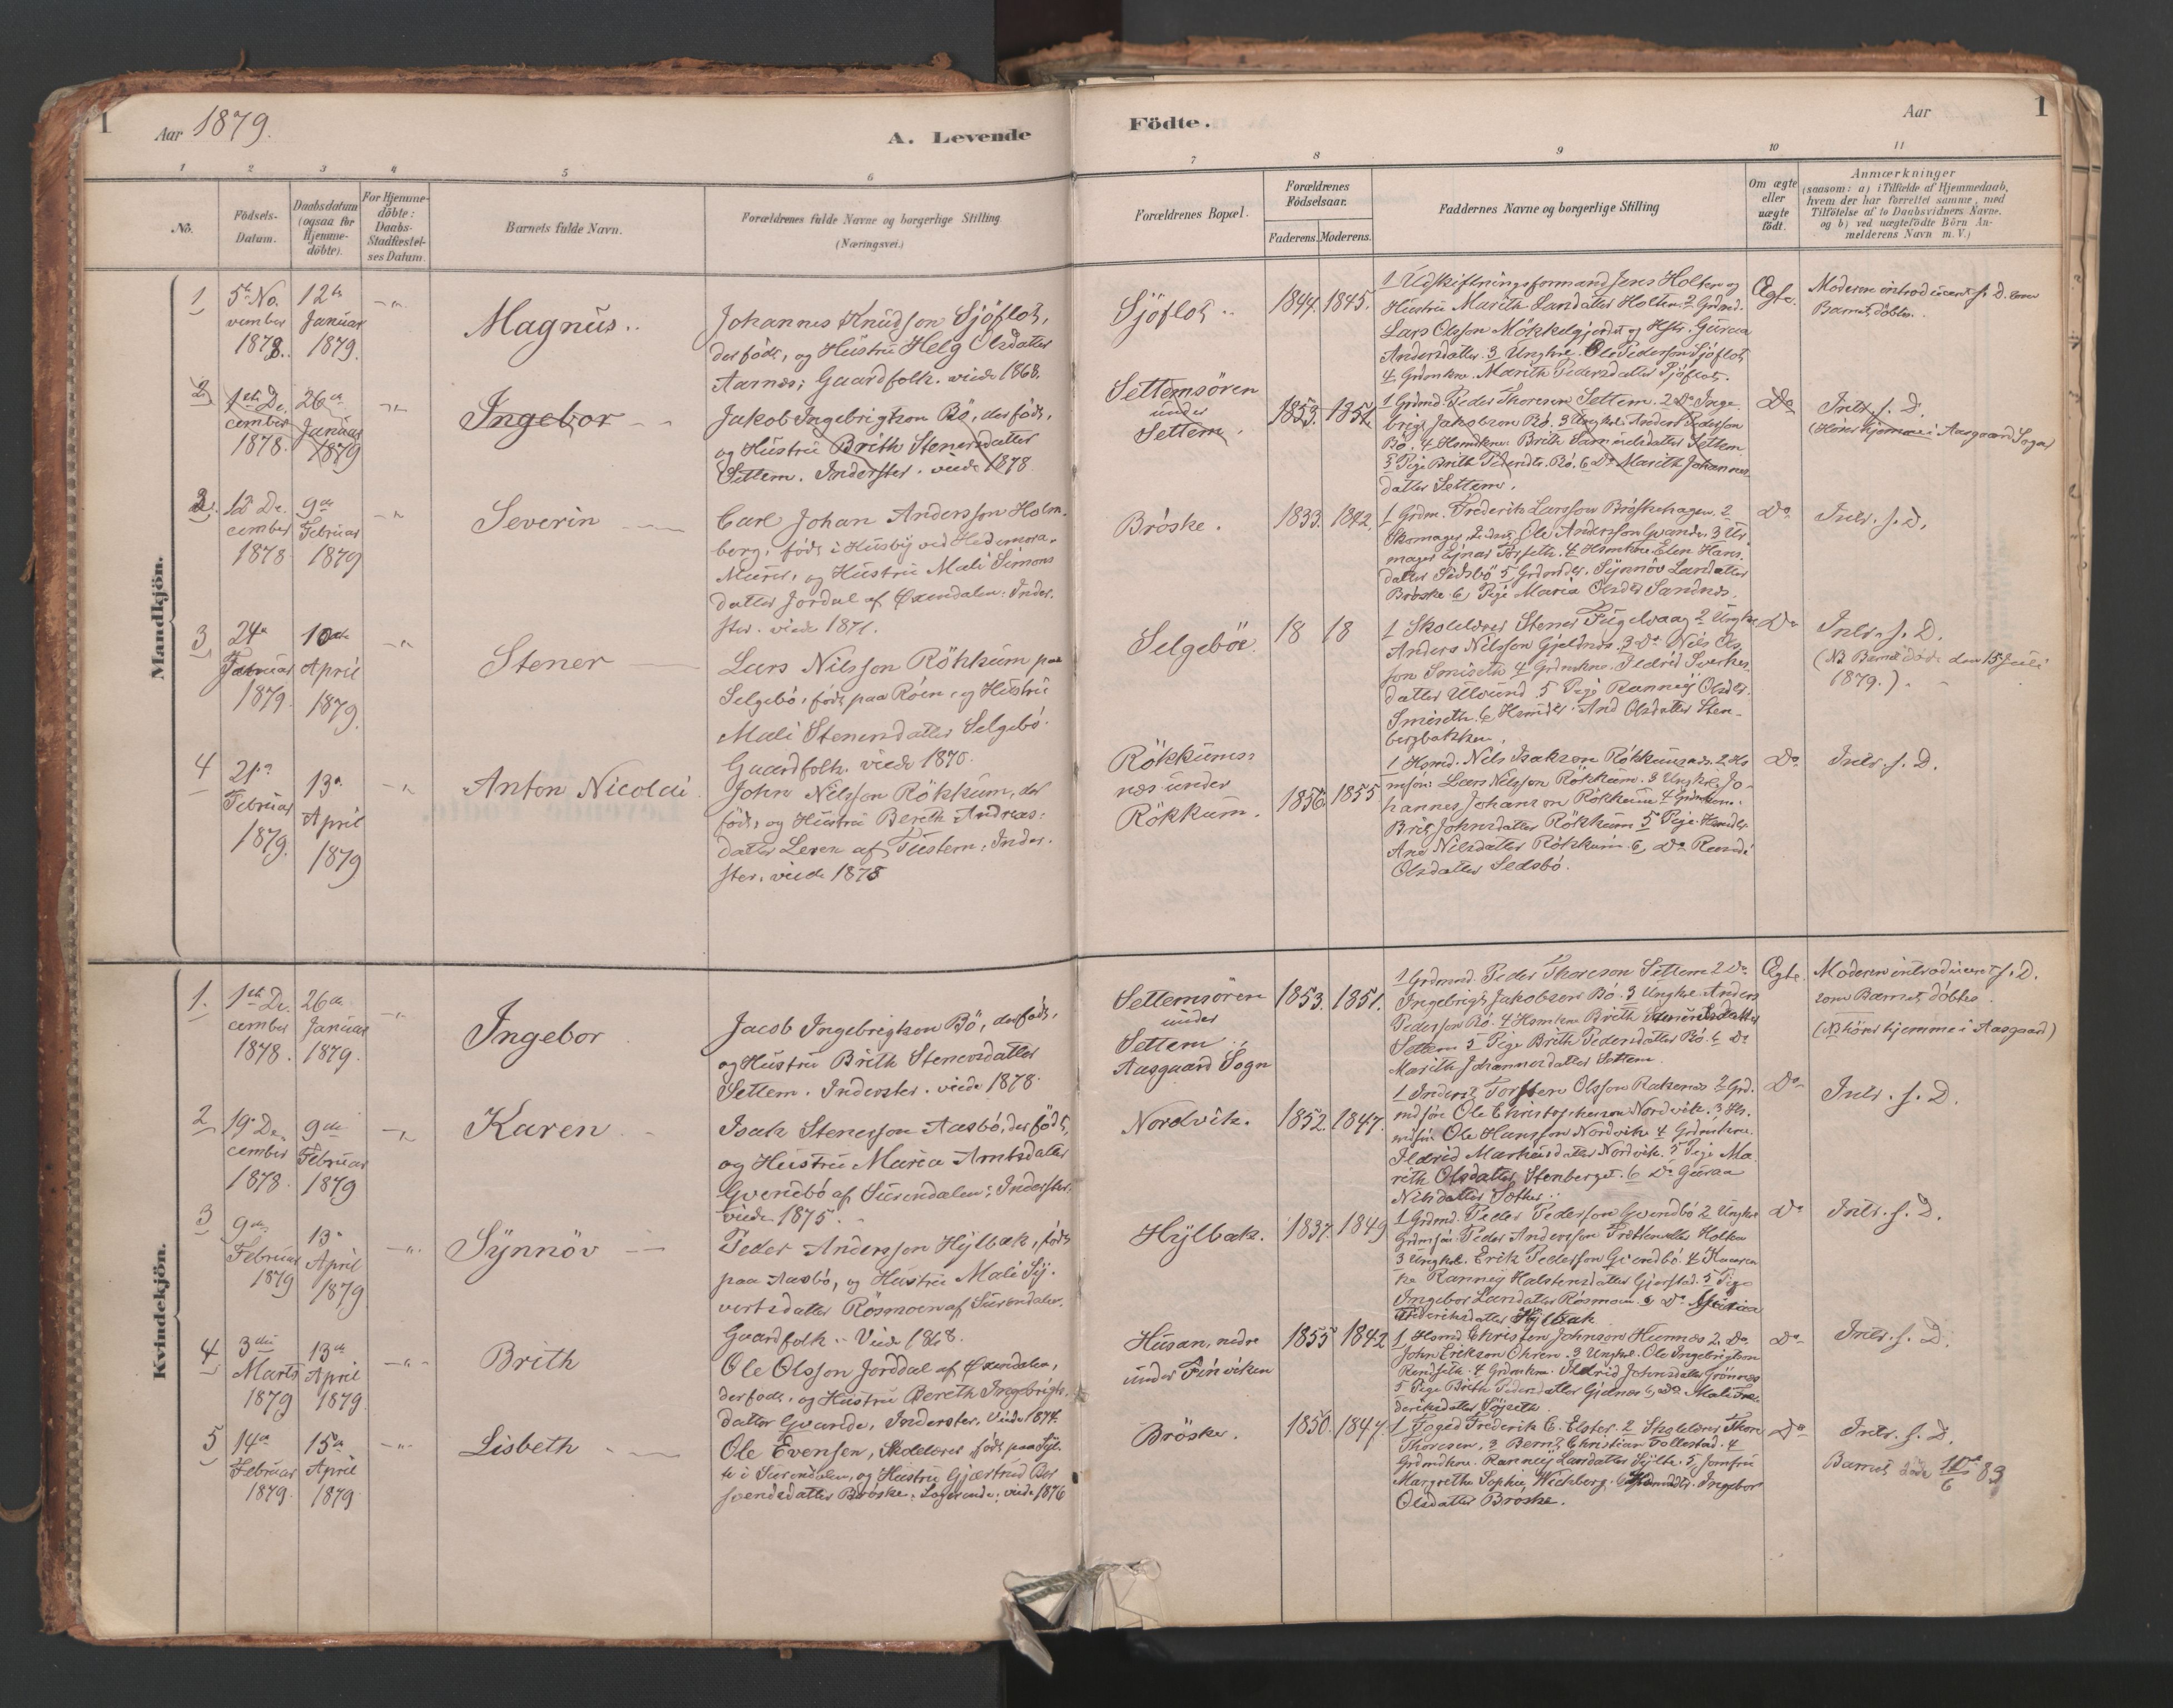 1
Aar 1879.
A. Levende
Födte.
Aar
1
1 2 3 4 5 6 7 8 9 10 11
No.
Födsels-
Datum.
Daabsdatum
(ogsaa for
Hjemme-
döbte).
For Hjemme-
döbte:
Daabs-
Stadfæstel-
ses Datum.
Barnets fulde Navn.
Forældrenes fulde Navne og borgerlige Stilling
(Næringsvei.)
Forældrenes Bopæl.
Forældrenes
Födselsaar.
Faderens. Moderens.
Faddernes Navne og borgerlige Stilling
Om ægte
eller
uægte
födt.
Anmærkninger
(saasom: a) i Tilfælde af Hjemmedaab,
hvem der har forrettet samme, med
Tilföielse af to Daabsvidners Navne.
og b) ved uægtefödte Börn An-
melderens Navn m.V.)
Mandkjön.
1
5te No.
vember
1878.
12te
Januar
1879.
Magnus
Johannes Knudson Sjöflot,
der födt, og Hustru Helg Olsdatter
Aarnæs; Gaardfolk. viede 1868.
Sjöflot
1844. 1845.
1 Udskiftningsformand Jens Holten og
Hustru Marith Larsdatter Holten 2 Grdmd.
Lars Olsson Mökkelgjerdet og Hstr. Gurua
Andersdatter. 3 Ungkrl. Ole Pederson Sjöflot,
4 Grdmkne. Marith Pedersdatter Sjöflot.
Ægte.
Moderen introduceret s. D. som
Barnet döbtes.
2
1ste De.
cember
1878.
26de
Januar
1879
Ingebor
Jakob Ingebrigtson Bö, der födt,
og Hustru Brith Stenersdatter
Settem. Inderster. viede 1878
Settemsören
under
Settem.
1853. 1851.
1 Grdmd. Peder Thoreson Settem. 2 Do Inge
brigt Jakobson Bö. 3 Ungkrl. Anders Pederson
Bö. 4 Hsmdkne. Brith Samuelsdatter Settem
5 Pige Brith Pedersdtr. Bö. 6 Do Marith Johannes
datter Settem.
Do
Intr. s. D.
(Hörer hjemme i Aasgaard Sogn)
2.
12 De.
cember
1878
9de
Februar
1879
Severin
Carl Johan Andersson Holm.
berg, födt i Husby ved Hedemora.
Murer, og Hustru Mali Simons
datter Jordal af Öxendalen: Inder.
ster. viede 1871.
Bröske.
1833. 1842.
1 Grdm. Frederik Larsson Bröskehagen. 2
Skomager Ole Andersson Gvande. 3 Ur
mager Ejnar Torseth. 4 Hsmkne. Elen Hans
datter Sedsbö 5 Grdmdtr. Synnöv Larsdatter
Bröske. 6 Pige Maria Olsdtr Sandnes.
Do
Intr. s. D.
3
24de
Februar
1879.
10de
April
1879.
Stener
Lars Nilsson Rökkum paa
Selgebö, födt paa Röen, og Hustru
Mali Stenersdatter Selgebö.
Gaardfolk. viede 1870.
Selgeböe
18 18
1 Skolelærer Stener Fugelvaag 2 Ungkrl
Anders Nilsson Gjeldnes. 3 Do Nils Ols
son Smiseth 4 Grdmkne. Ildrid Sverkes
datter Ulvund. 5 Pige Ranney Olsdtr.
Smiseth. 6 Hsmdtr. And Olsdatter Sten-
bergbakken.
Do
Intr. s. D.
(NB Barnet döde den 15 Juli
1879.)
4
21de
Februar
1879.
13de
April
1879
Anton Nicolai
John Nilsson Rökkum, der
födt, og Hustru Bereth Andreas:
datter Leren af Tustern: Inder.
ster. viede 1878
Rökkums:
nes under
Rökkum.
1856 1855
1 Hsmd. Nils Isakson Rökkumsnes. 2 Hs
msön: Lars Nilsson Rökkum. 3 Ungkrl. Jo-
hannes Johanson Rökkum 4 Grdmkone.
Brit Johnsdatter Rökkum 5 Pige. Hsmdtr.
Ane Nilsdatter Rökkum. 6 Do Randi
Olsdatter Sedsbö.
Do
Intr. s. D.
Kvindekjön.
1.
1ste De.
cember
1878.
26de
Januar
1879.
Ingebor
Jacob Ingebrigtson Bö, der födt,
og Hustru Brith Stenersdatter
Settem. Inderster. viede 1878.
Settemsören
under
Settem.
Aasgaard Sogn
1853. 1851.
1 Grdmd. Peder Thoreson Settem 2 Do
Ingebrigt Jakobson Bö. 3 Ungkrl. Anders
Pederson Bö. 4 Hsmkne Brith Samuelsdatter
Settem 5 Pige Brith Pedersdatter Bö. 6 Do
Marith Johannesdatter Settem.
Ægte.
Moderen introduceret s. D.
som Barnet döbtes.
(NB hörer hjemme i Aasgaard)
2
19de De.
cember
1878.
9de
Februar
1879
Karen
Isak Stenerson Aasbö, der födt,
og Hustru Maria Arntsdatter
Gvendbö af Surendalen: Inderster.
viede 1875.
Nordvik.
1852. 1847.
1 Inderst Torsten Olsson Rakenes 2 Grd.
mdsön Ole Christopherson Nordvik. 3 Hs.
mdsön Ole Hansson Nordvik 4 Grdmkone.
Ildrid Markusdatter Nordvik. 5 Pige Ma.
rith Olsdatter Stenberget. 6 Do Guruna
Nilsdatter Sæther.
Do
Intr. s. D.
3
9de
Februar
1879
13de
April
1879
Synnöv
Peder Andersson Hylbak, födt
paa Aasbö, og Hustru Mali Sy.
vertsdatter Rösmoen af Surendalen.
Gaardfolk. Viede 1868.
Hylbak.
1837. 1849
1 Grdmd. Peder Pederson Gvendbö 2 Ungkrl
Grdmsön. Peder Andersson Holten
3 Ungkrl. Erik Pederson Gvendbö. 4 Kaaren
ke Ranney Halstensdatter Gjerstad. 5 Pige
Ingebor Larsdatter Rösmoen 6 Do Maria
Frederiksdatter Hylbak
Do
Intr. s. D.
4
3die
Marts
1879
13de
April
1879.
Brith
Ole Olsson Jorddal af Öxendalen,
der födt, og Hustru Bereth Ingebrigts.
datter Gvande, Inderster. Viede 1874.
Husan, nedre
under Finviken
1855 1842
1 Hsmd Christen Johnson Hamnes 2. Do
John Erikson Ohren. 3 Ungkrl. Ole Ingebrigtson
Rendseth. 4 Grdmkne. Ildrid Johnsdatter Grönnes
5 Pige Brith Pedersdatter Gjelnes 6 Do Mali Fre
deriksdatter Sögseth.
Do
Intr. s. D.
5
14de
Februar
1879.
15de
April
1879
Lisbeth
Ole Evensen, Skolelærer födt paa Syl.
te i Surendalen, og Hustru Gjærtrud Ber
svendsdatter Bröske. Logerende: viede 1876
Bröske.
1850. 1847.
1 Foged Frederik C. Elster. 2 Skolelærer Thore
Thoresen, 3 Bernt Christian Follestad. 4
Grdmdkne. Ranney Larsdatter Sylte. 5 Jomfru
Margrethe Sophie Weidberg. 6 Grdmdtr. Ingebor
Olsdatter Bröske.
Do
Intr. s. D.
Barnet döde 83